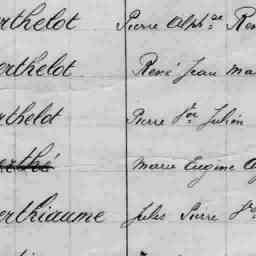 erthelot Pierre Alph.se Ren
erthelot. René Jean Ma
erthelot Pierre F.ois Julien
erthé Marie Eugène
erthiaume Jules Pierre